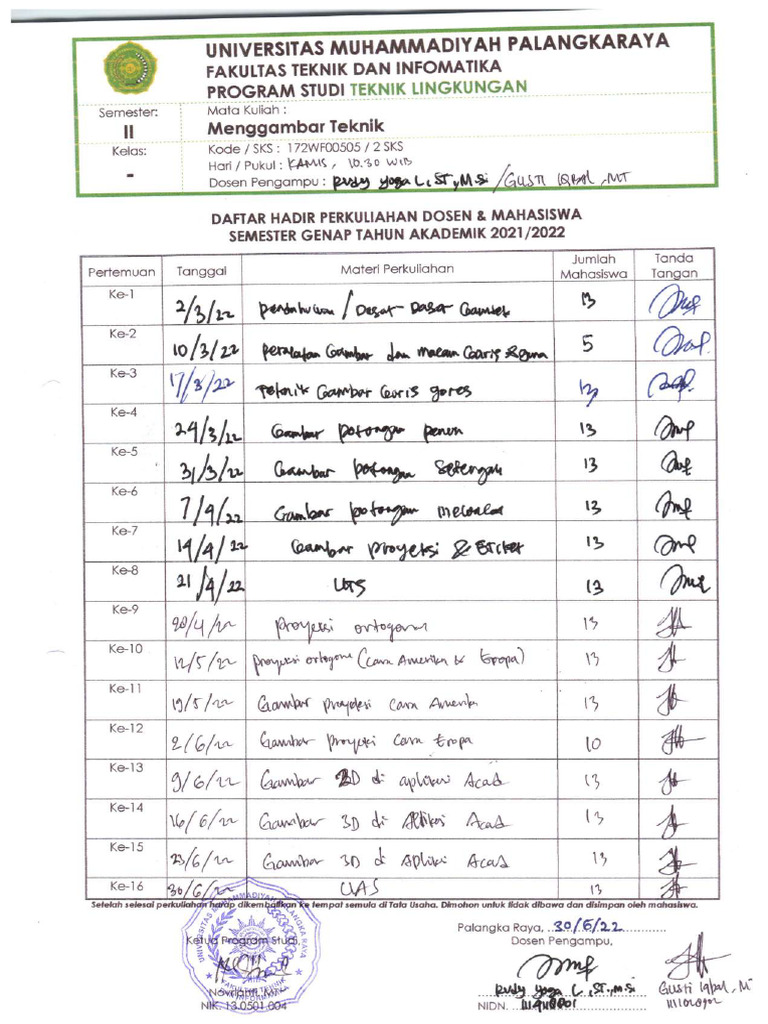 UNIVERSITAS MUHAMMADIYAH PALANGKARAYA
FAKULTAS TEKNIK DAN INFOMATIKA
PROGRAM STUDI TEKNIK LINGKUNGAN
Semester:
II
Kelas:
-
Mata Kuliah :
Menggambar Teknik
Kode / SKS : 172WF00505 / 2 SKS
Hari / Pukul : KAMIS, 10.30 WIB
Dosen Pengampu : Rudy Yoga L, ST, M.Si / GUSTI IQBAL, MT
DAFTAR HADIR PERKULIAHAN DOSEN & MAHASISWA
SEMESTER GENAP TAHUN AKADEMIK 2021/2022
Pertemuan Tanggal Materi Perkuliahan Jumlah Mahasiswa Tanda Tangan
Ke-1 2/3/22 Pendahuluan / Dasar Dasar Gamtek 13
Ke-2 10/3/22 Peralatan Gambar dan Macam Garis & guna 5
Ke-3 17/3/22 Teknik Gambar Garis gores 13
Ke-4 24/3/22 Gambar potongan penuh 13
Ke-5 31/3/22 Gambar potongan Setengah 13
Ke-6 7/4/22 Gambar potongan 13
Ke-7 14/4/22 Gambar Proyeksi & Eticket 13
Ke-8 21/4/22 UTS 13
Ke-9 28/4/22 Proyeksi ortogonal 13
Ke-10 12/5/22 Proyeksi ortogonal (Cara Amerika & Eropa) 13
Ke-11 19/5/22 Gambar proyeksi Cara Amerika 13
Ke-12 2/6/22 Gambar proyeksi Cara Eropa 10
Ke-13 9/6/22 Gambar 2D di aplikasi Acad 13
Ke-14 16/6/22 Gambar 3D di Aplikasi Acad 13
Ke-15 23/6/22 Gambar 3D di Aplikasi Acad 13
Ke-16 30/6/22 UAS 13
Setelah selesai perkuliahan harap dikembalikan ke tempat semula di Tata Usaha. Dimohon untuk tidak dibawa dan disimpan oleh mahasiswa.
Palangka Raya, 30/6/22
Ketua Program Studi
Dosen Pengampu,
UNIVERSITAS MUHAMMADIYAH PALANGKA RAYA
FAKULTAS TEKNIK
Novrianti, MT
NIK. 13.0501.004
Rudy Yoga L, ST, M.Si
NIDN.
Gusti Iqbal, M